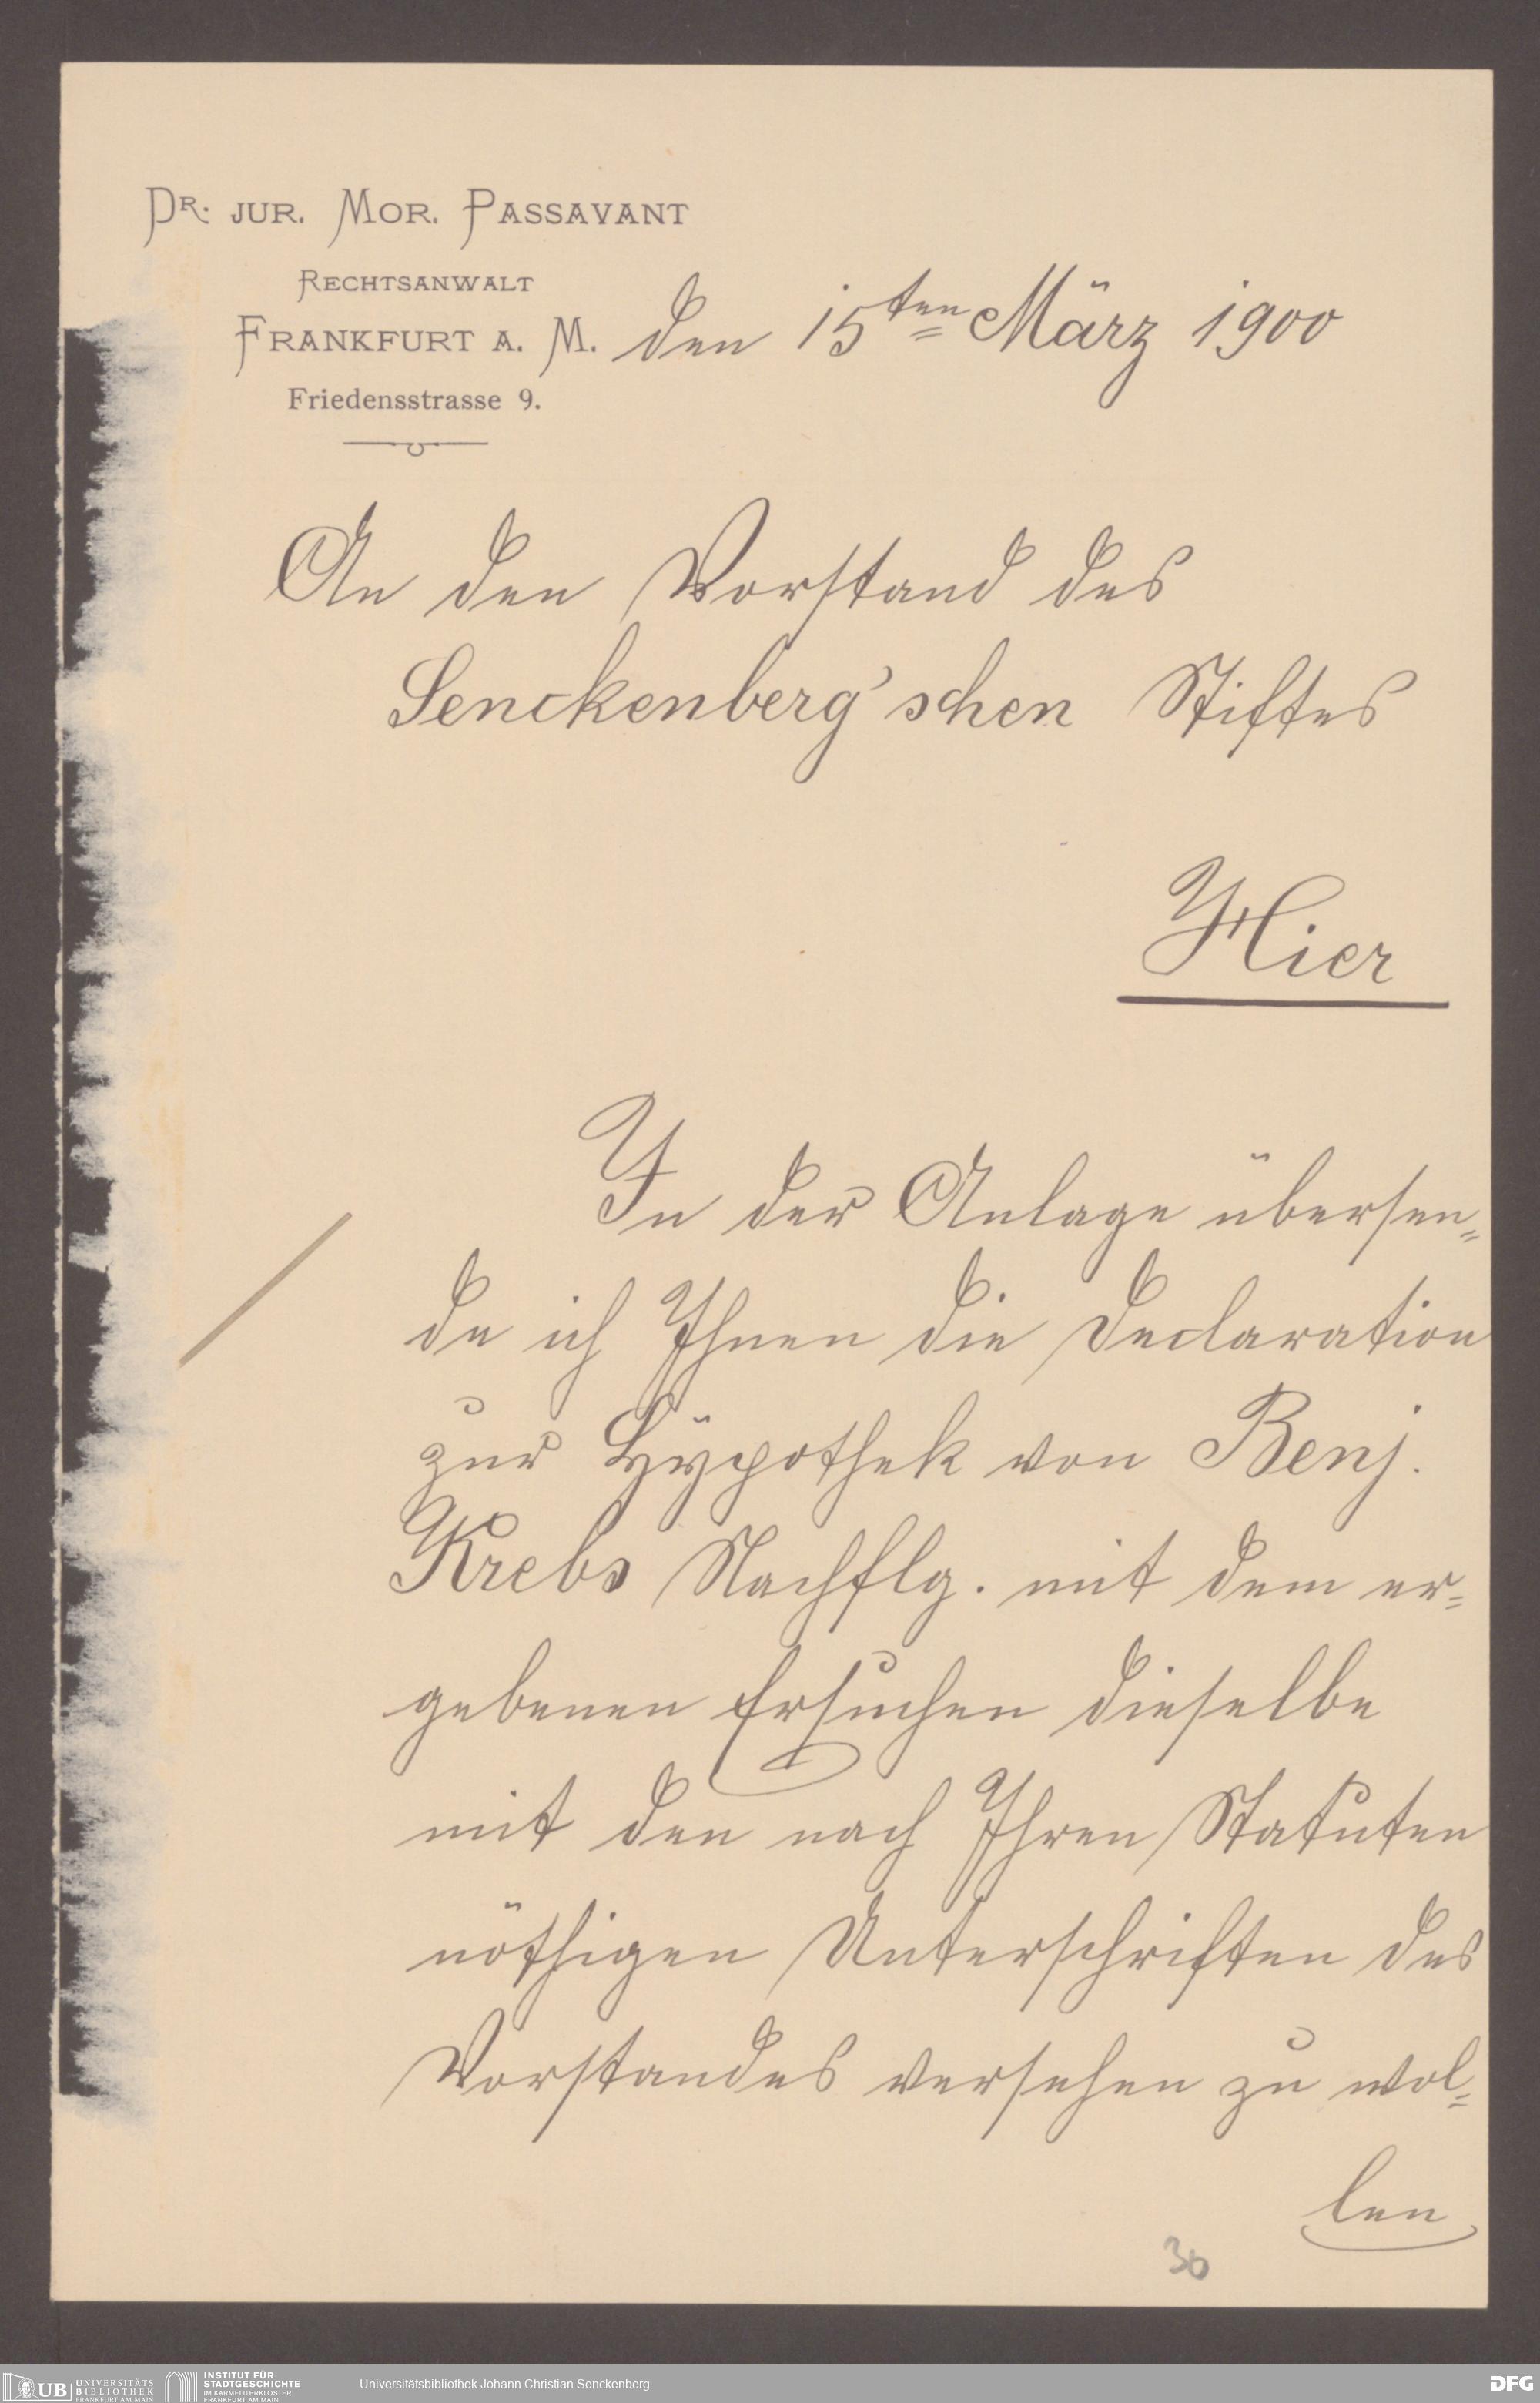 DR. JUR. MOR. PASSAVANT
RECHTSANWALT
FRANKFURT A. M. den 15ten März 1900
Friedensstrasse 9.
An den Vorstand des
Senckenberg'schen Stiftes
Hier
In der Anlage übersen=
de ich Ihnen die Declaration
zur Hÿpothek von Benj.
Krebs Nachflg. mit dem er=
gebenen Ersuchen dieselbe
mit den nach Ihren Statuten
nöthigen Unterschriften des
Vorstandes versehen zu wol=
len
30
UB UNIVERSITÄTS BIBLIOTHEK FRANKFURT AM MAIN
INSTITUT FÜR STADTGESCHICHTE IM KARMELITERKLOSTER FRANKFURT AM MAIN
Universitätsbibliothek Johann Christian Senckenberg
DFG